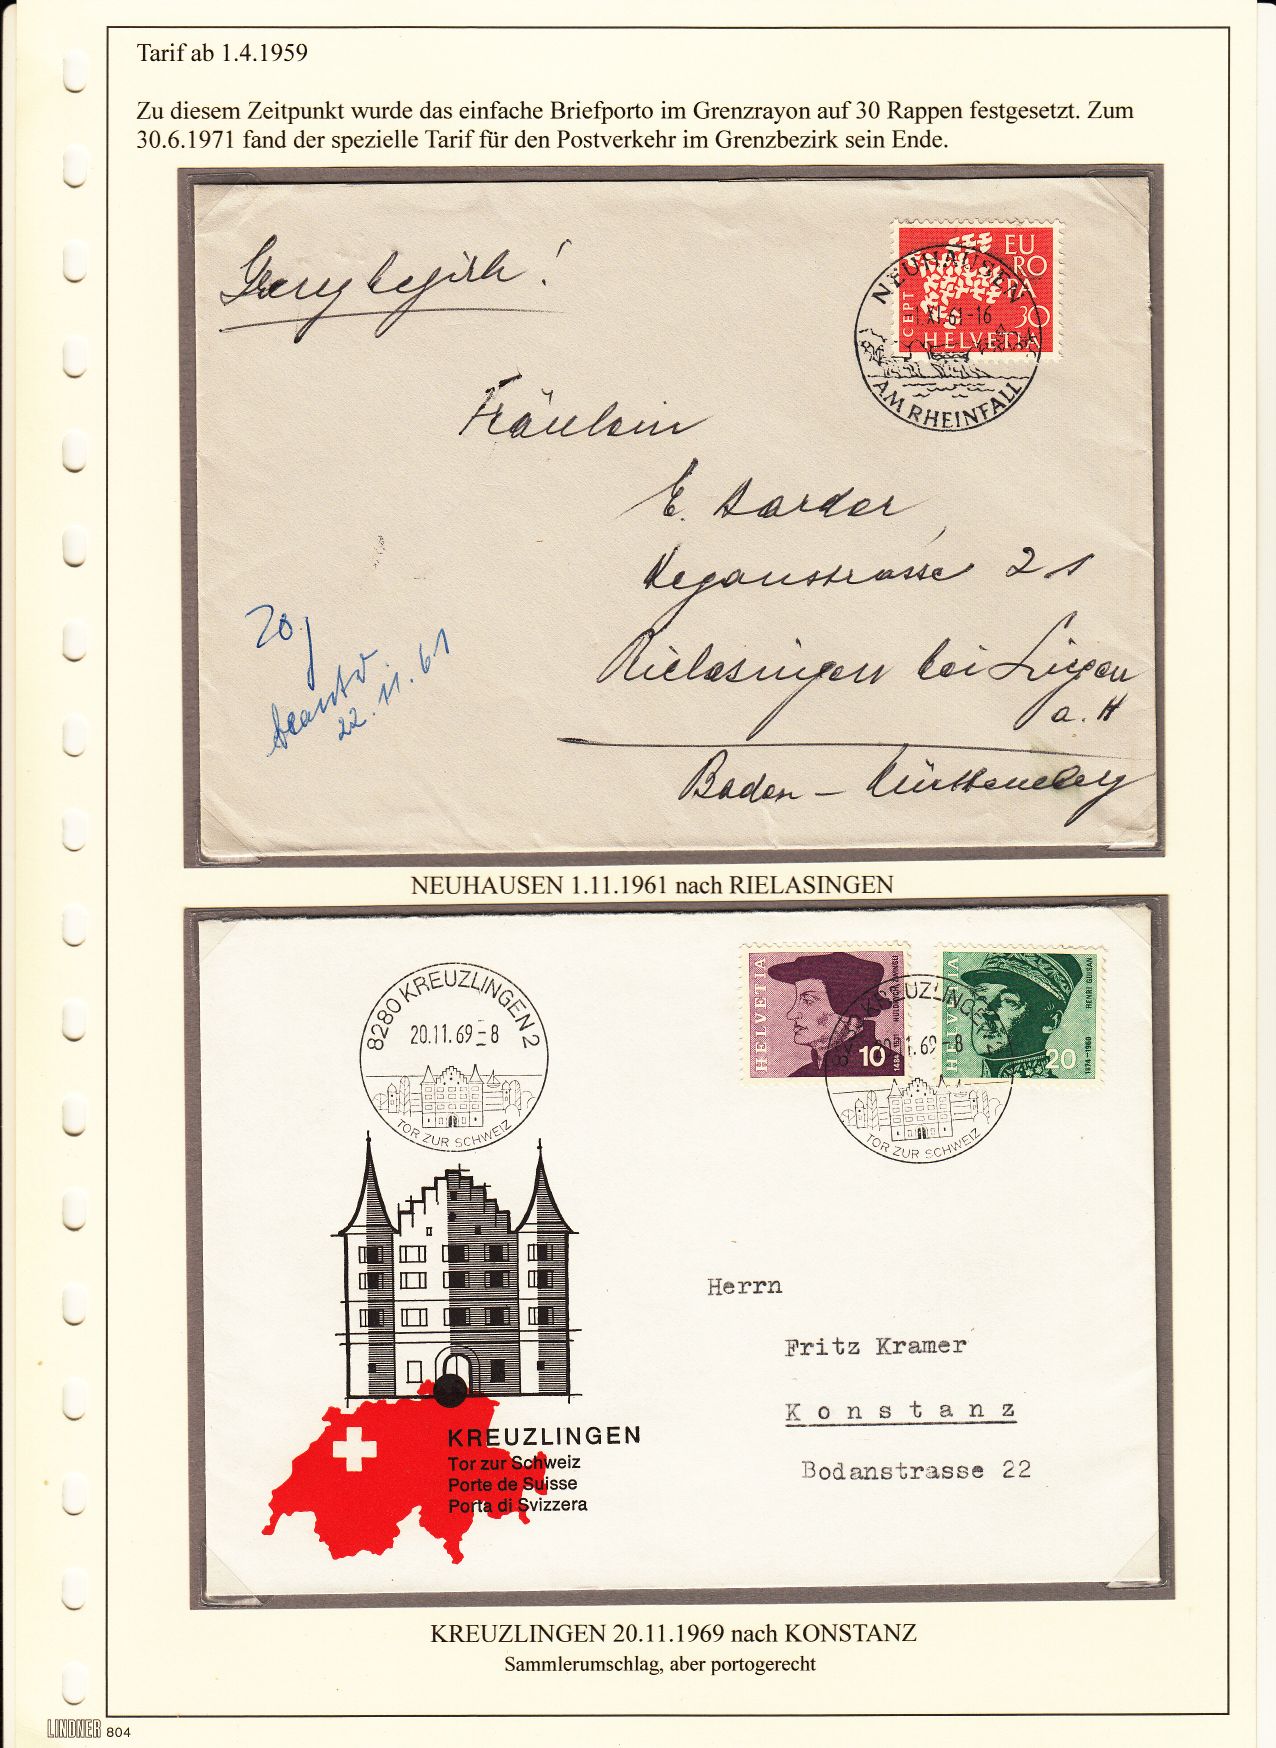 Tarif ab 1.4.1959
Zu diesem Zeitpunkt wurde das einfache Briefporto im Grenzrayon auf 30 Rappen festgesetzt. Zum
30.6.1971 fand der spezielle Tarif für den Postverkehr im Grenzbezirk sein Ende.
Grenzbezirk!
EU
RO
PA
CEPT
30
HELVETIA
NEUHAUSEN
1.XI.61-16
AM RHEINFALL
Fräulein
E. Harder
Hegaustrasse 21
Rielasingen bei Singen
a. H
Baden - Württemberg
22.11.61
NEUHAUSEN 1.11.1961 nach RIELASINGEN
8280 KREUZLINGEN 2
20.11.69-8
TOR ZUR SCHWEIZ
HELVETIA
HULDRYCH ZWINGLI
1484-1531
10
HELVETIA
HENRI GUISAN
1874-1960
20
KREUZLINGEN
20.11.69-8
TOR ZUR SCHWEIZ
Herrn
Fritz Kramer
Konstanz
Bodanstrasse 22
KREUZLINGEN
Tor zur Schweiz
Porte de Suisse
Porta di Svizzera
KREUZLINGEN 20.11.1969 nach KONSTANZ
Sammlerumschlag, aber portogerecht
LINDNER 804